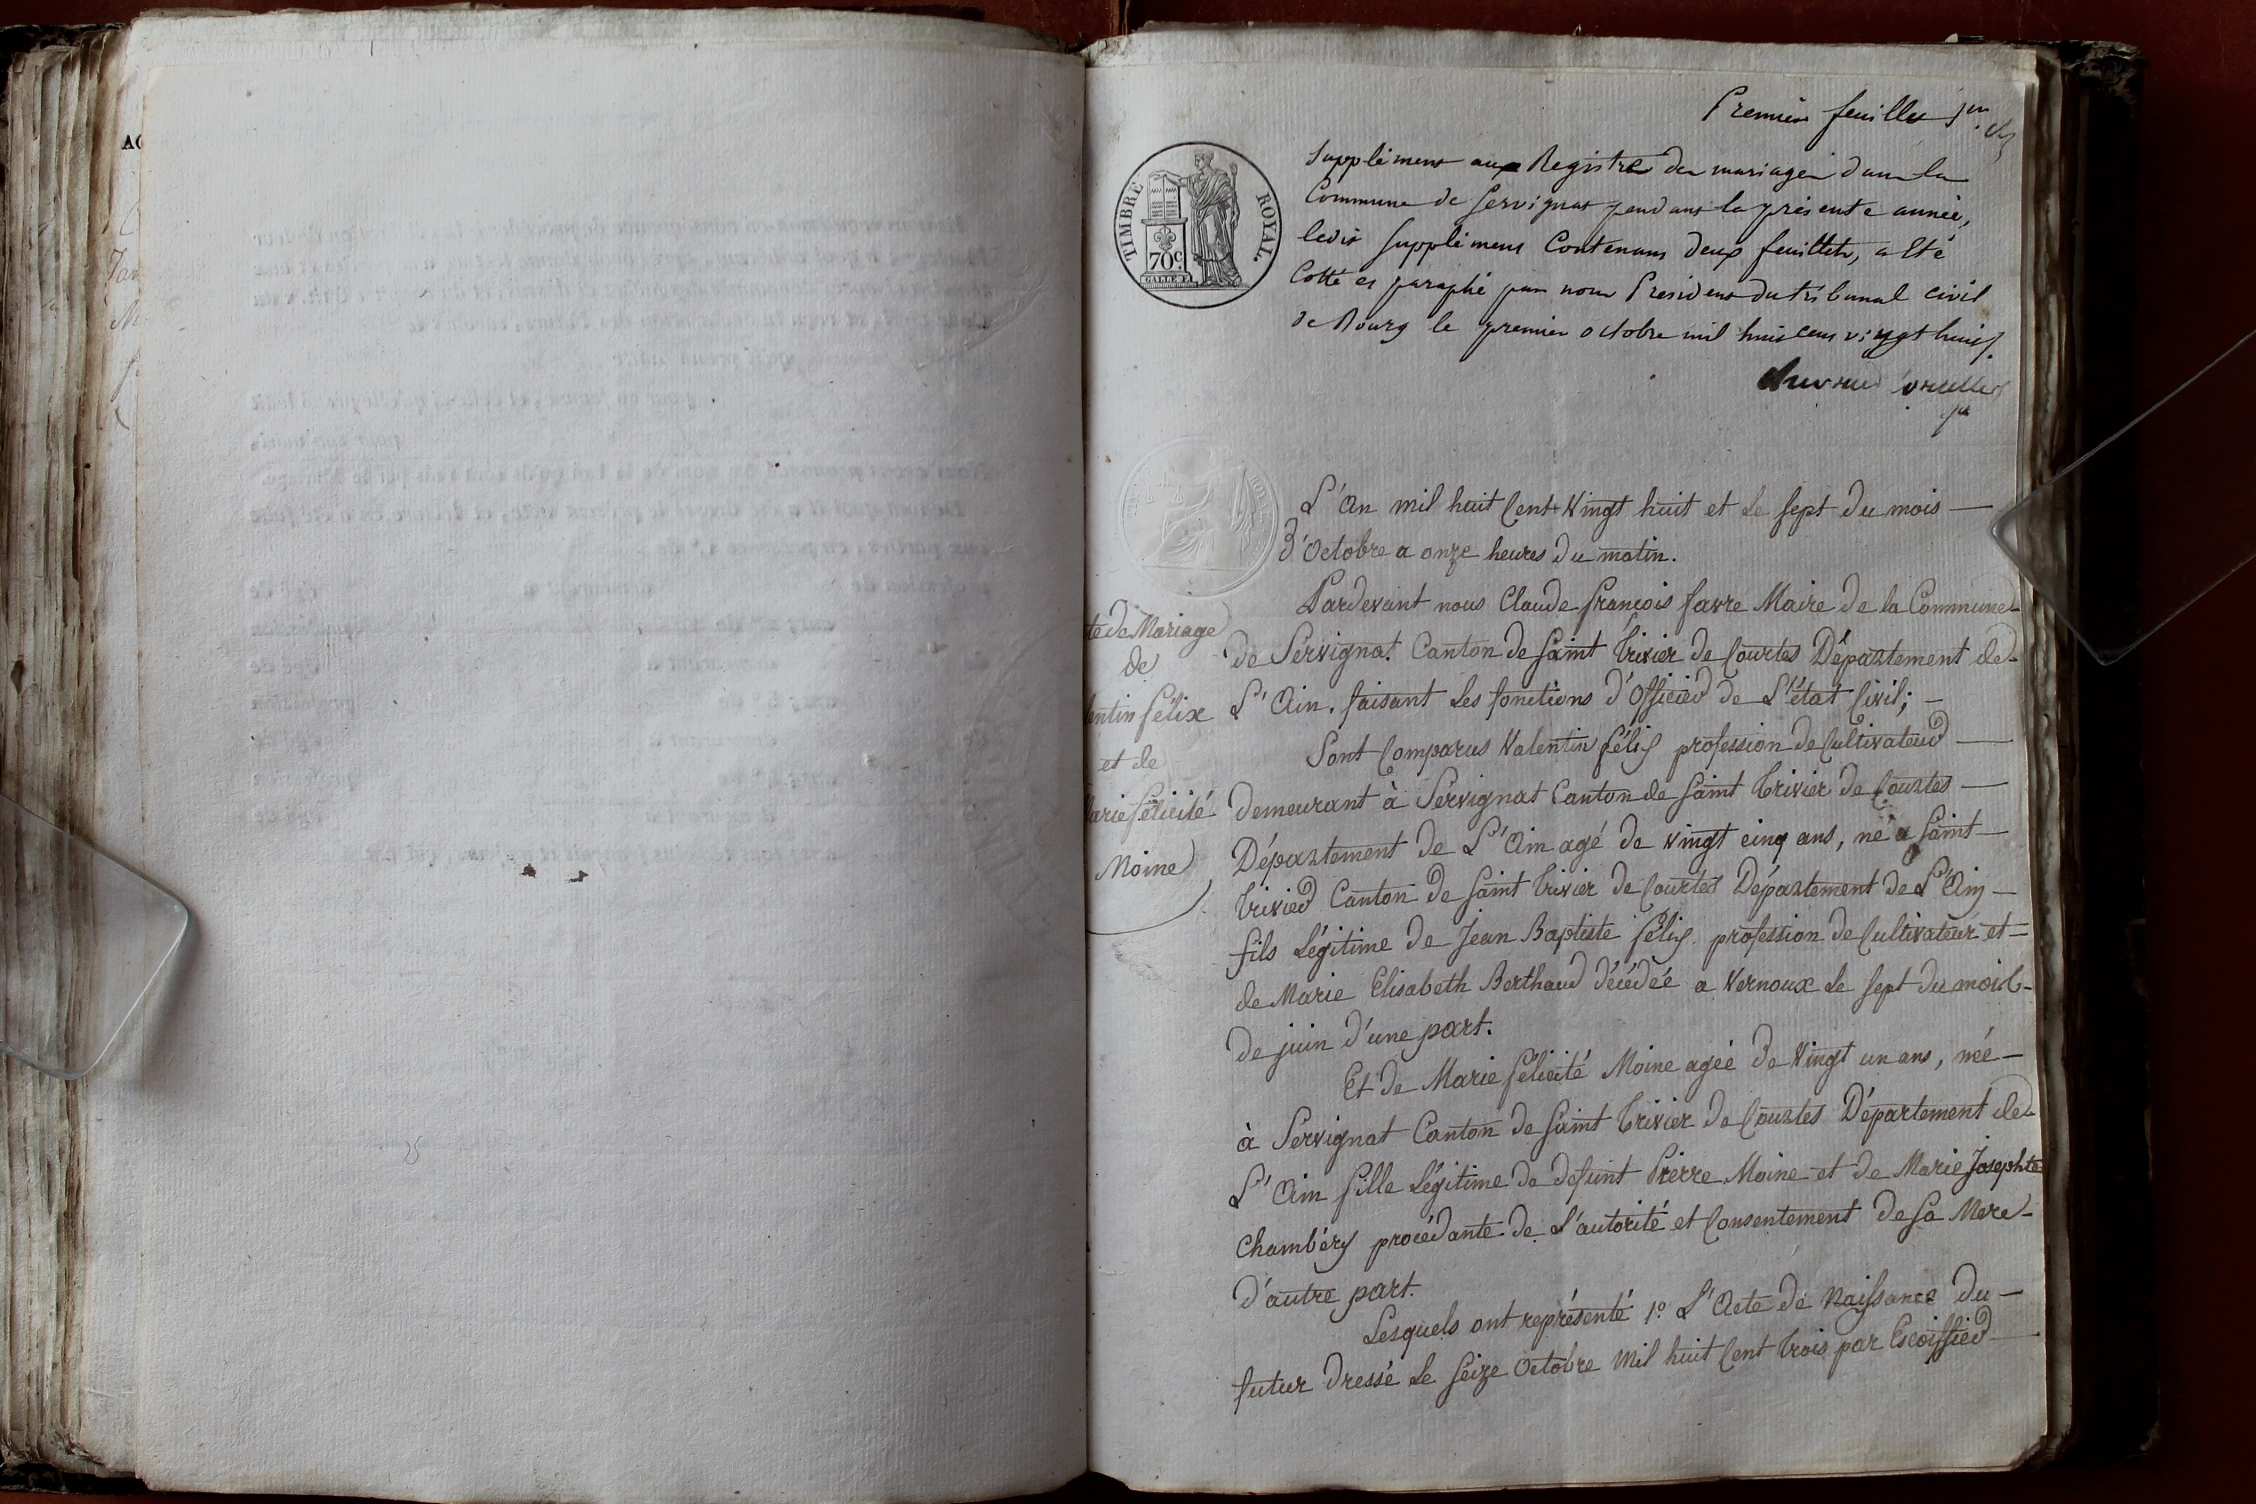 Premier feuillet
TIMBRE ROYAL
70c.
supplément aux Registre des mariages dans la
Commune de Servignat pendant la présente année,
ledit supplément Contenant deux feuillets, a Eté
Cotté et paraphé par nous Président du tribunal civil
de Bourg le premier octobre mil huit cent vingt huit.
L'An mil huit Cent Vingt huit et le sept du mois —
D'Octobre a onze heures du matin.
Pardevant nous Claude françois favre Maire de la Commune
de Servignat Canton de Saint Trivier de Courtes Département de
L'Ain. faisant les fonctions d'Officier de L'état Civil; —
Sont Comparus Valentin félix profession de Cultivateur —
demeurant à Servignat Canton de Saint Trivier de Courtes —
Département de L'Ain agé de vingt cinq ans, né a Saint —
Trivier Canton de Saint Trivier de Courtes Département de L'Ain —
fils Légitime de Jean Baptiste félix profession de Cultivateur et —
de Marie Elisabeth Berthaud décédée a Vernoux Le sept du mois
de juin d'une part.
Et de Marie félicité Moine agée de Vingt un ans, née —
à Servignat Canton de Saint Trivier de Courtes Département de
L'Ain fille Légitime de defunt Pierre Moine et de Marie Josephte
Chambéry procédante de L'autorité et Consentement de sa Mere
d'autre part.
Lesquels ont représenté 1.o L'Acte de Naissance du —
futur dressé Le Seize Octobre Mil huit Cent trois par Escoiffier —
te de Mariage
de
entin félix
et de
arie félicité
Moine